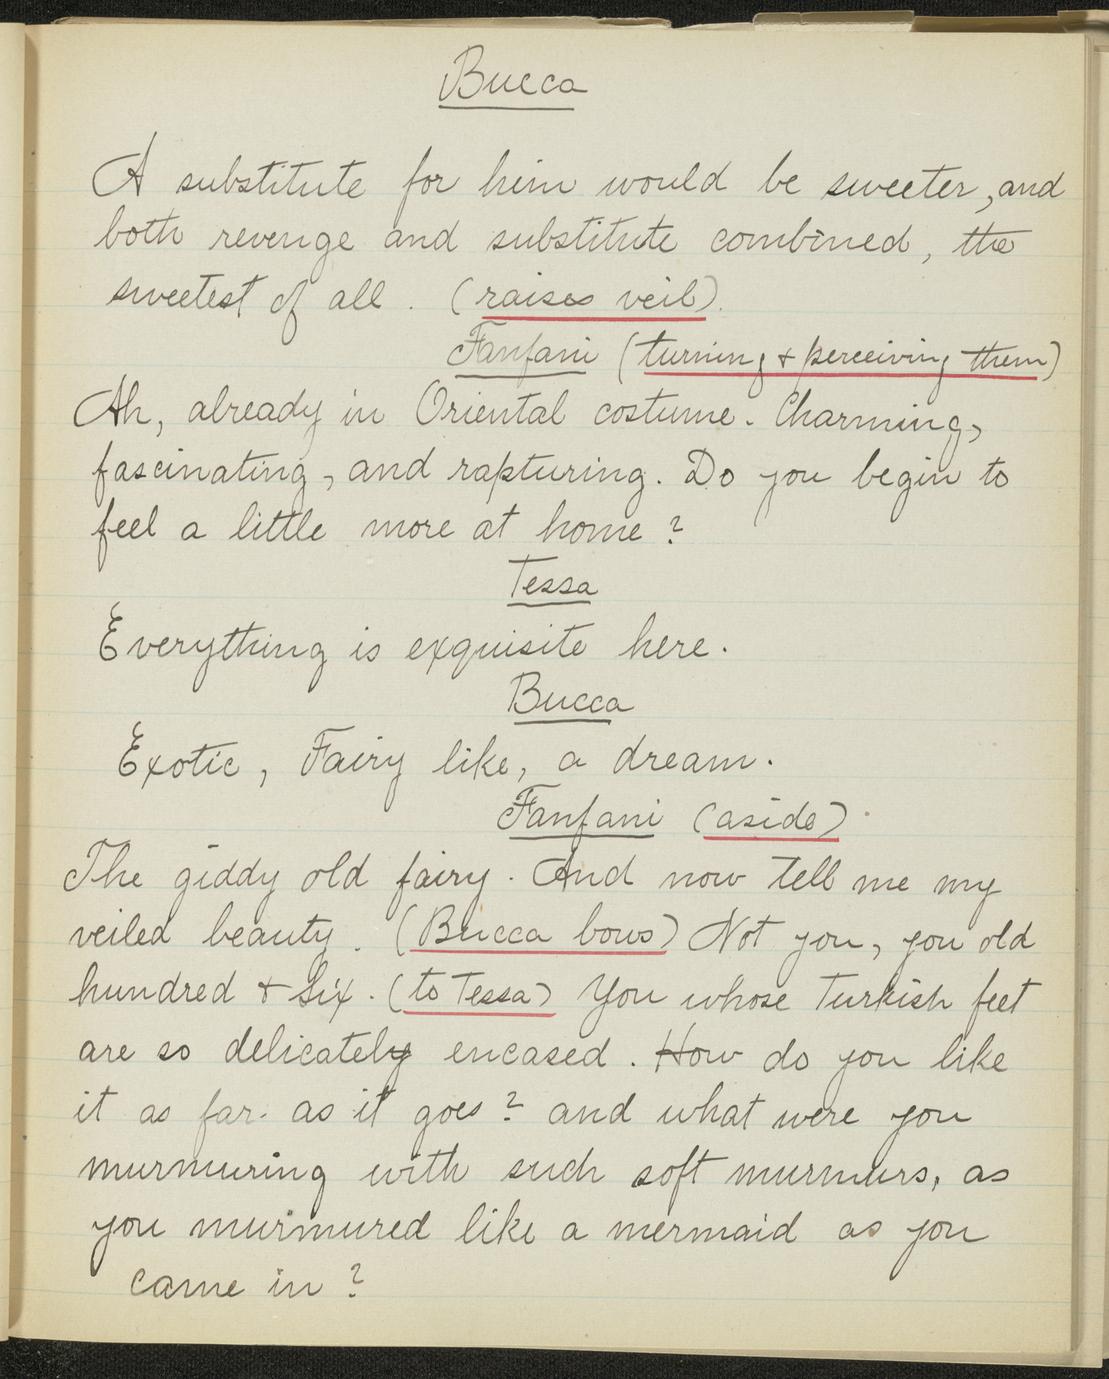 Bucca
A substitute for him would be sweeter, and
both revenge and substitute combined, the
sweetest of all. (raises veil).
Fanfani (turning & perceiving them)
Ah, already in Oriental costume. Charming,
fascinating, and rapturing. Do you begin to
feel a little more at home?
Tessa
Everything is exquisite here.
Bucca
Exotic, Fairy like, a dream.
Fanfani (aside)
The giddy old fairy. And now tell me my
veiled beauty. (Bucca bows) Not you, you old
hundred & Six. (to Tessa) You whose Turkish feet
are so delicately encased. How do you like
it as far as it goes? and what were you
murmuring with such soft murmurs, as
you murmured like a mermaid as you
came in?